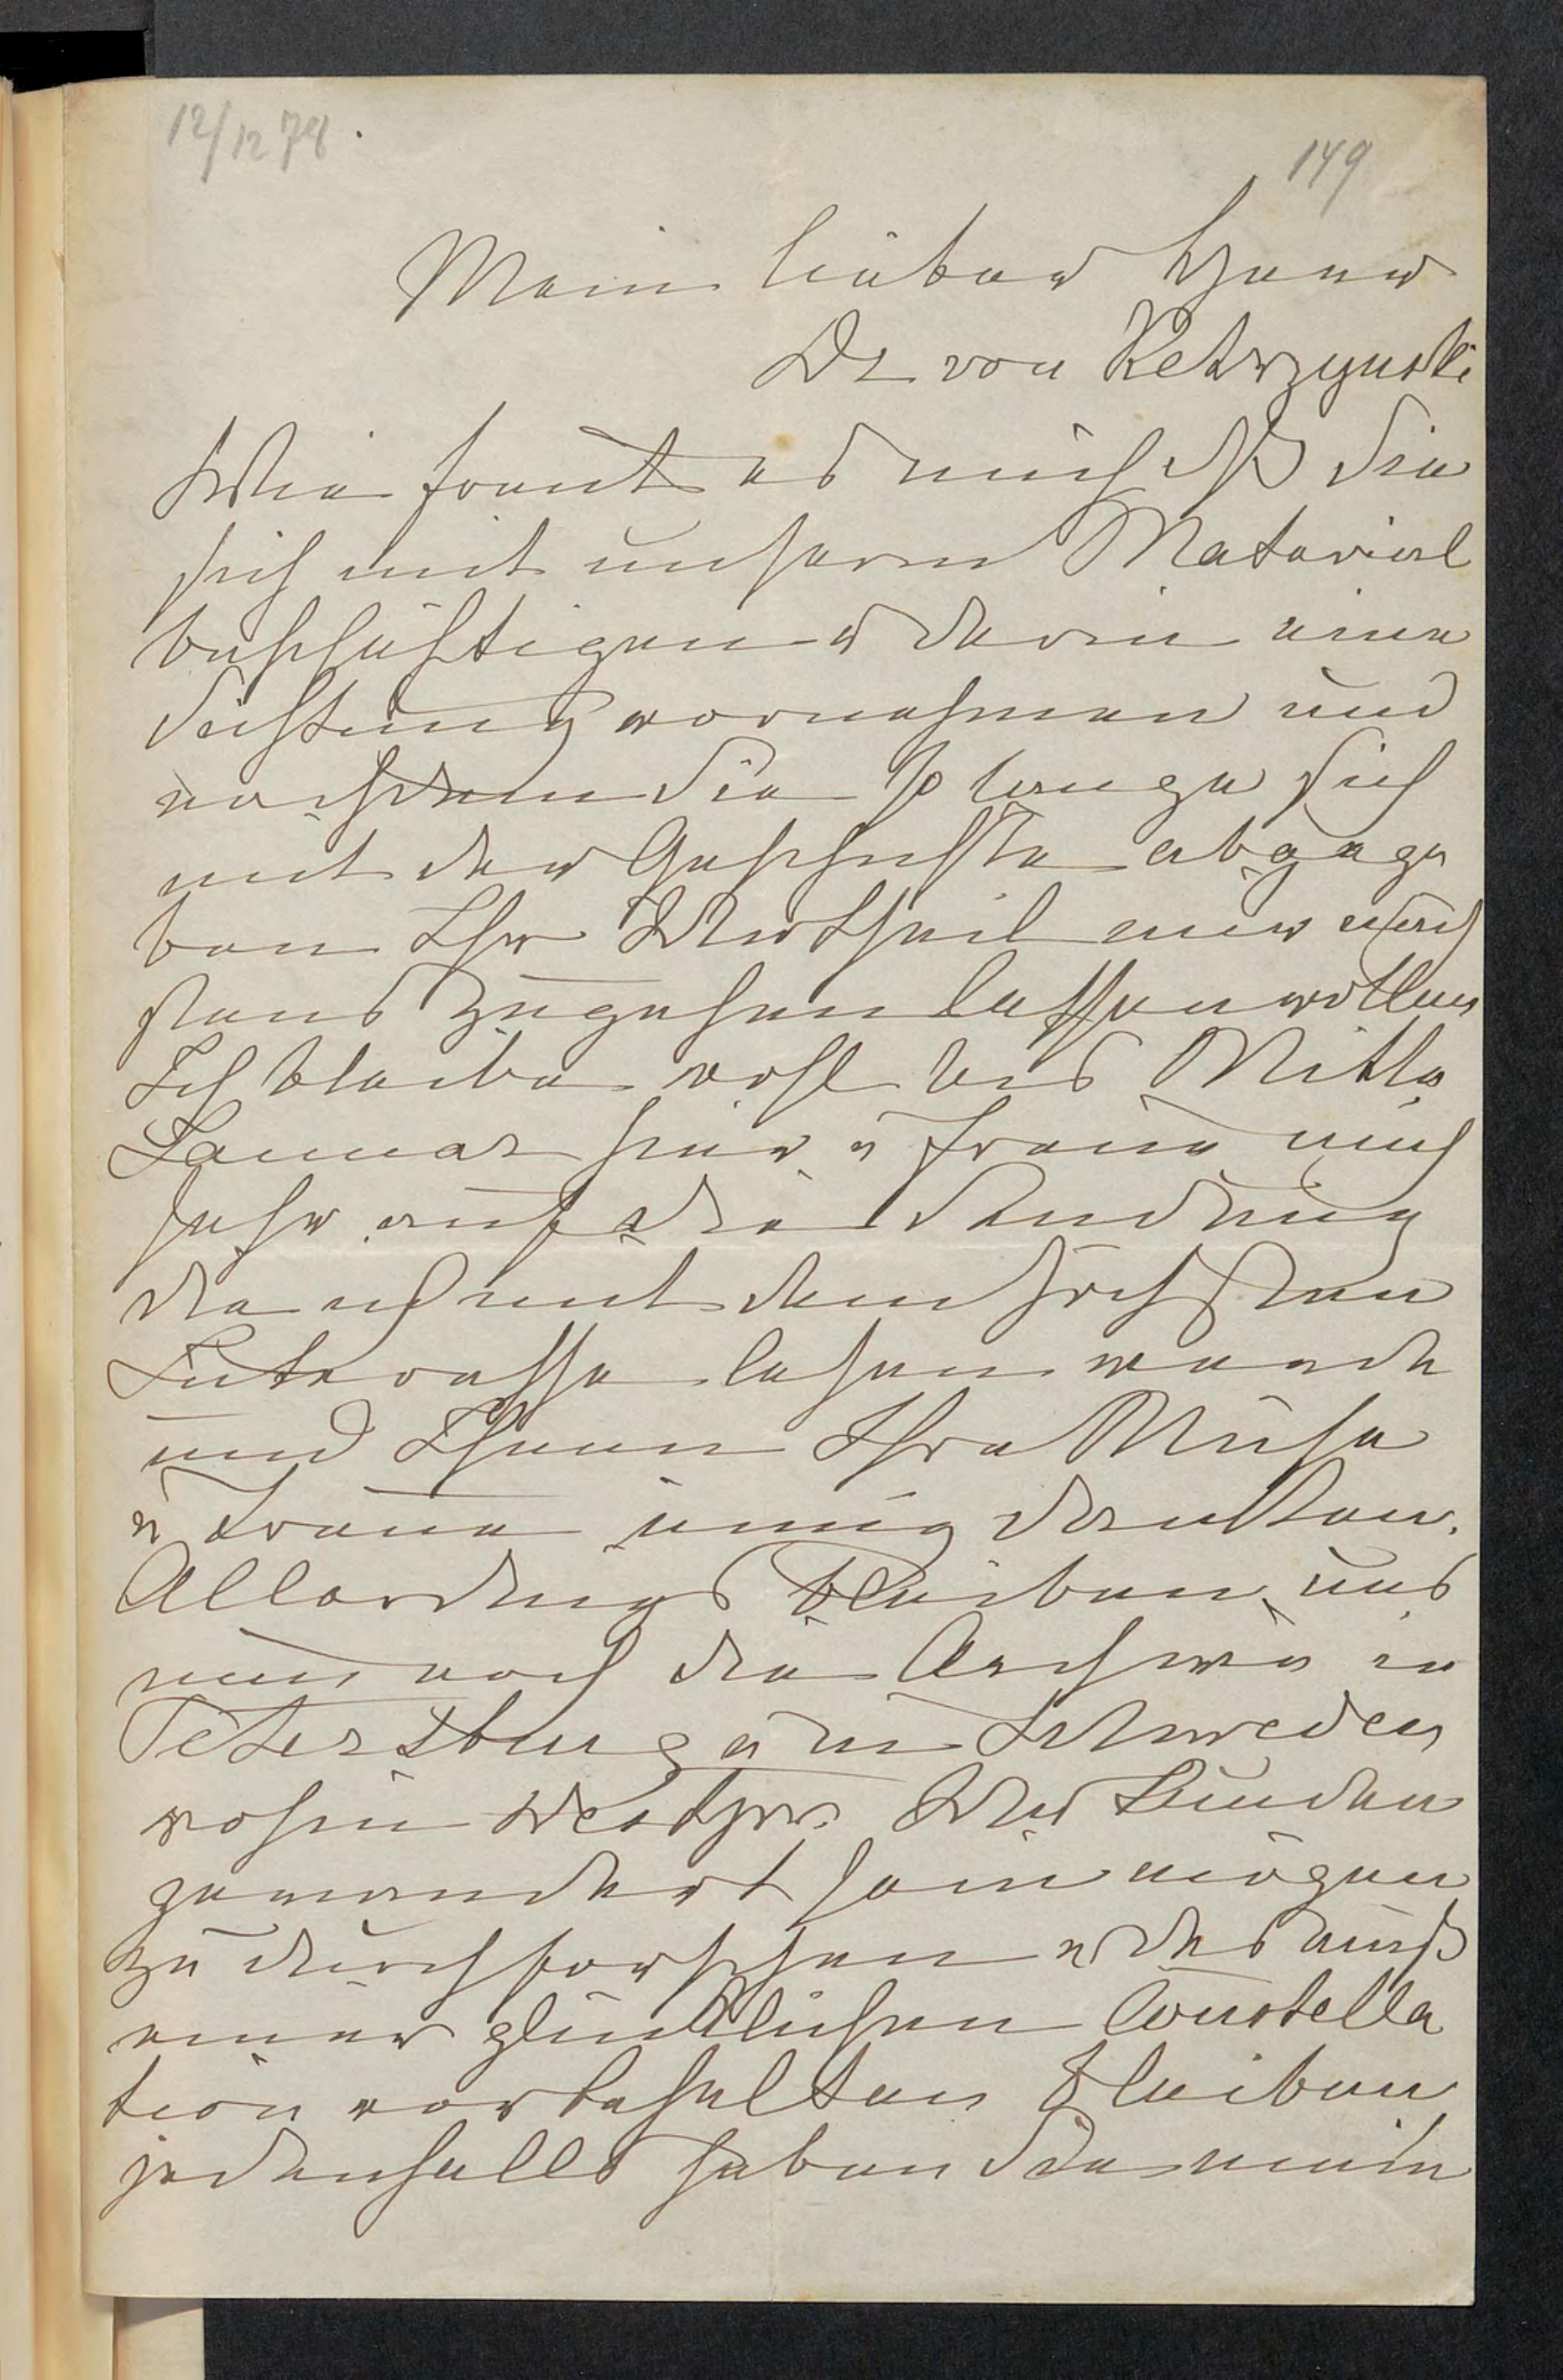 12/12 78.
149
Mein lieber Herr
Dr von Ketrzynski
Wie freut es mich dß Sie
sich mit unserm Material
beschäftigen u darin eine
Sichtung vornehmen und
nachdem Sie so lange sich
mit der Geschichte abgege
ben Ihr Urtheil mir
zugehen lassen wollen
Ich bleibe wohl bis Mitte
Januar hier u freue mich
sehr auf die Sendung
die ich mit dem höchsten
Interesse lesen werde
und Ihnen Ihre Mühe
u Treue innig danken.
Allerdings bleiben uns
nun noch die Archive in
Petersburg u in Schweden
wohin Westpr. Urkunden
gewandert sein mögen
zu durchforschen u das muß
einer glücklichen Constella
tion vorbehalten bleiben
jedenfalls haben Sie mein